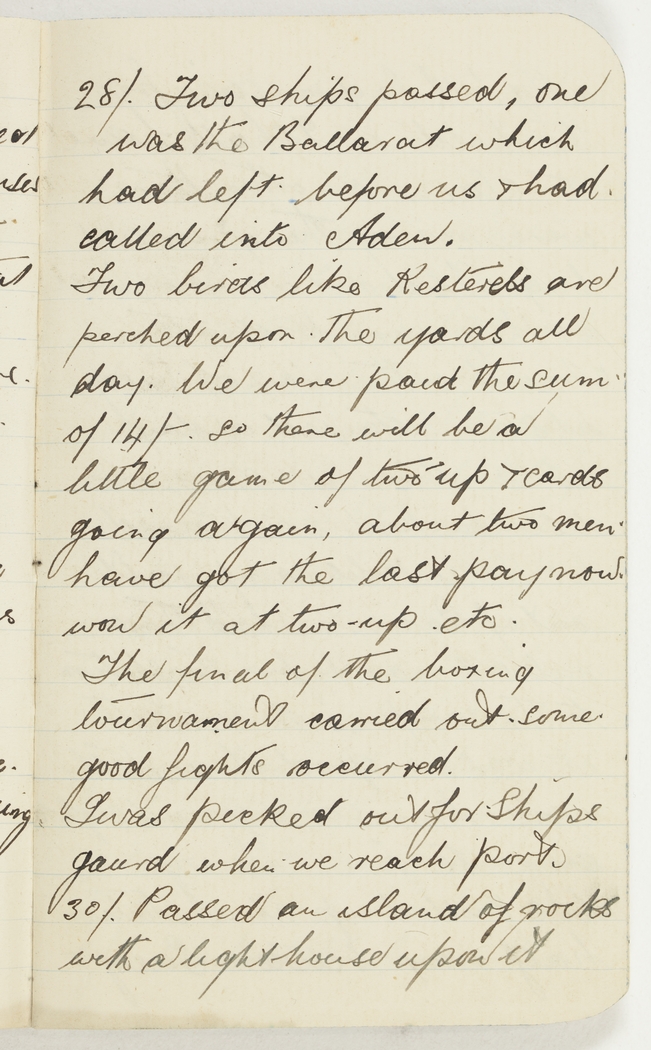 28/. Two ships passed, one
was the Ballarat which
had left before us & had
called into Aden.
Two birds like Kesterels are
perched upon the yards all
day. We were paid the sum
of 14/-. so there will be a
little game of two-up & cards
going again, about two men
have got the last pay now.
won it at two-up etc.
The final of the boxing
tournament carried out. some
good fights occurred.
I was picked out for Ships
gaurd when we reach port.
30/. Passed an island of rocks
with a light-house upon it